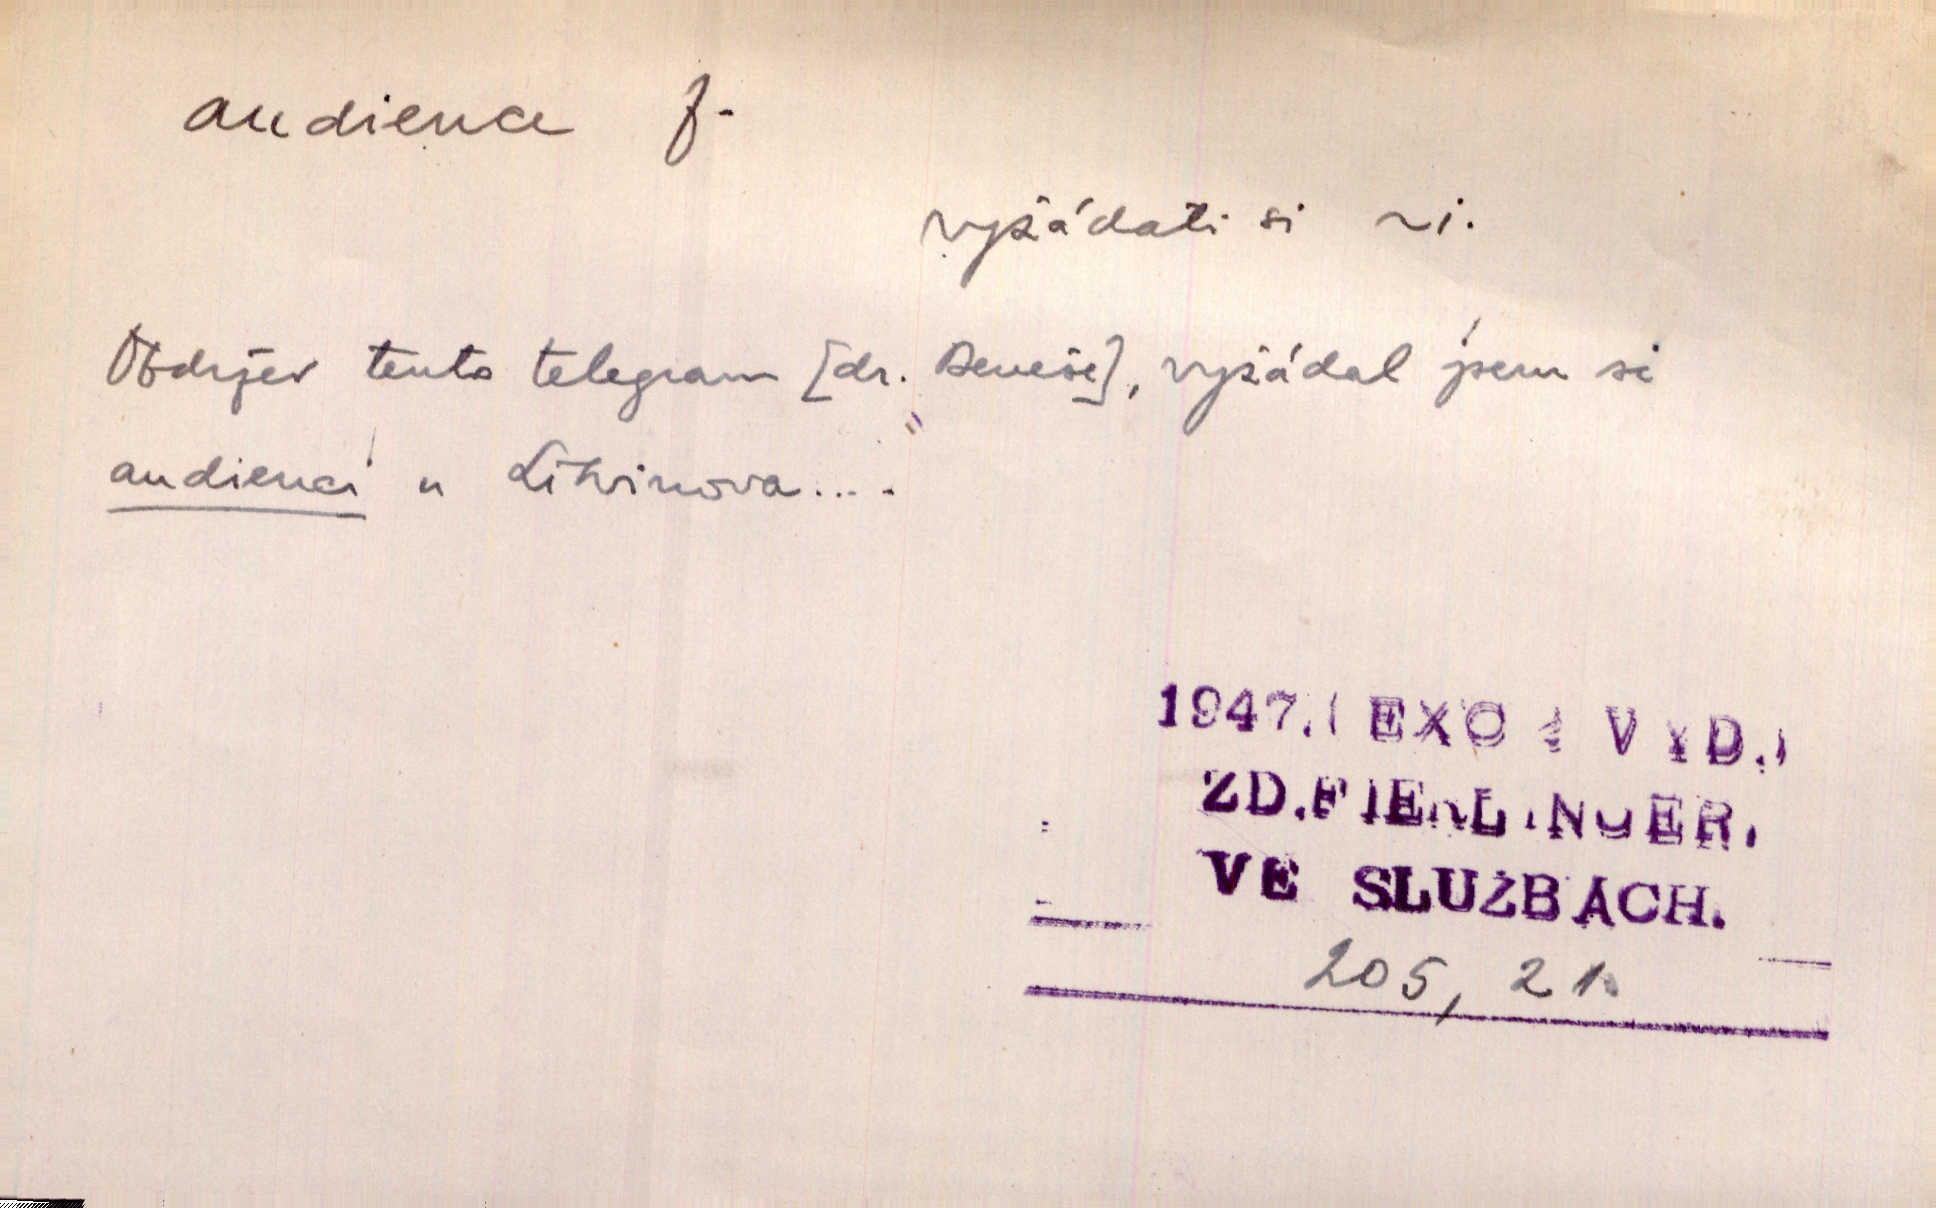 audience f.
vyžádati si ~i.
Obdržev tento telegram [dr. Beneše], vyžádal jsem si
audienci u Litvinova....
1947. EXC. VYD.
ZD. FIERLINGER.
VE SLUŽBÁCH.
205, 21.